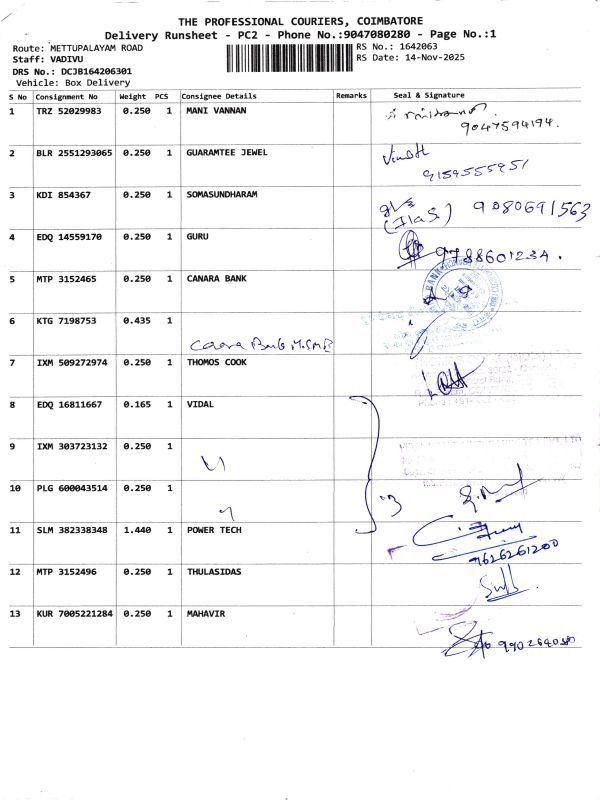 THE PROFESSIONAL COURIERS, COIMBATORE
Delivery Runsheet - PC2 - Phone No.:9047080280 - Page No.:1
Route: METTUPALAYAM ROAD
RS No.: 1642063
Staff: VADIVU
RS Date: 14-Nov-2025
DRS No.: DCJB164206301
Vehicle: Box Delivery
S No Consignment No Weight PCS Consignee Details Remarks Seal & Signature
1 TRZ 52029983 0.250 1 MANI VANNAN
9047594194.
2 BLR 2551293065 0.250 1 GUARAMTEE JEWEL
9159555951
3 KDI 854367 0.250 1 SOMASUNDHARAM
9080691563
4 EDQ 14559170 0.250 1 GURU
9788601234.
5 MTP 3152465 0.250 1 CANARA BANK
6 KTG 7198753 0.435 1
Canara Bank M.S.M.E
7 IXM 509272974 0.250 1 THOMOS COOK
8 EDQ 16811667 0.165 1 VIDAL
9 IXM 303723132 0.250 1
10 PLG 600043514 0.250 1
11 SLM 382338348 1.440 1 POWER TECH
9626261200
12 MTP 3152496 0.250 1 THULASIDAS
13 KUR 7005221284 0.250 1 MAHAVIR